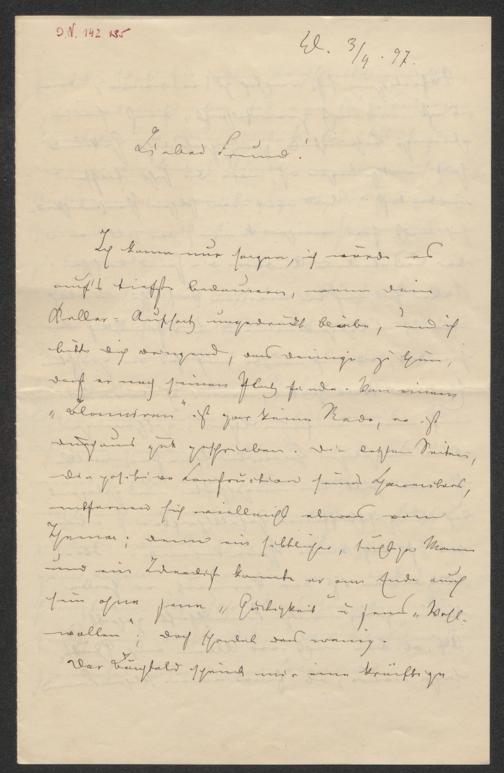 I.N. 142 185
3/9. 97.
Lieber Freund!
Ich kann nur sagen, ich würde es
auf's tiefste bedauern, wenn Dein
Keller-Aufsatz ungedruckt bliebe, und ich
bitte dich dringend, das Deinige zu thun,
daß er noch seinen Platz finde. Von einem
"Blamiren" ist gar keine Rede, er ist
durchaus gut geschrieben. Die letzten Seiten,
die positive Construction
entfernen sich vielleicht etwas vom
Thema; denn ein sittlicher, tüchtiger Mann
und ein Idealist konnte er am Ende auch
sein ohne jene "Gütigkeit" u jenes "Wohl-
wollen"; doch schadet das wenig.
Der scheint mir eine kräftige